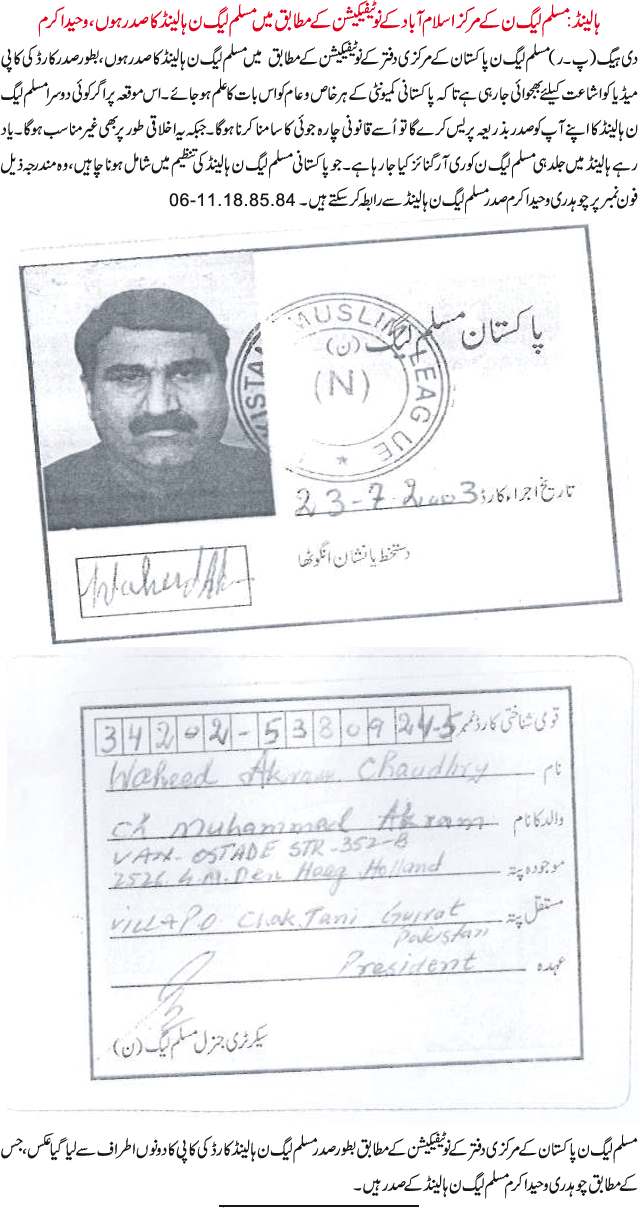 ہالینڈ: مسلم لیگ ن کے مرکز اسلام آباد کے نوٹیفکیشن کے مطابق میں مسلم لیگ ن ہالینڈ کا صدر ہوں، وحید اکرم
دی ہیگ (پ۔ر) مسلم لیگ ن پاکستان کے مرکزی دفتر کے نوٹیفکیشن کے مطابق میں مسلم لیگ ن ہالینڈ کا صدر ہوں، بطور صدر کارڈ کی کاپی
میڈیا کو اشاعت کیلئے بھجوائی جا رہی ہے تاکہ پاکستانی کمیونٹی کے ہر خاص و عام کو اس بات کا علم ہو جائے۔ اس موقعہ پر اگر کوئی دوسرا مسلم لیگ
ن ہالینڈ کا اپنے آپ کو صدر بذریعہ پریس کرے گا تو اُسے قانونی چارہ جوئی کا سامنا کرنا ہو گا۔ جبکہ یہ اخلاقی طور پر بھی غیر مناسب ہو گا۔ یاد
رہے ہالینڈ میں جلد ہی مسلم لیگ ن کو ری آرگنائز کیا جا رہا ہے۔ جو پاکستانی مسلم لیگ ن ہالینڈ کی تنظیم میں شامل ہونا چاہیں، وہ مندرجہ ذیل
فون نمبر پر چوہدری وحید اکرم صدر مسلم لیگ ن ہالینڈ سے رابطہ کر سکتے ہیں۔ 06-11.18.85.84
MUSLIM LEAGUE
(N)
پاکستان مسلم لیگ (ن)
تاریخ اجراء کارڈ 23-7-2003
دستخط یا نشان انگوٹھا
قومی شناختی کارڈ نمبر 34202-5380924-5
نام Waheed Akram Chaudhry
والد کا نام Ch Muhammad Akram
VAN-OSTADE STR-352-B
موجودہ پتہ 2526 G.M. Den Haag Holland
مستقل پتہ VILL APO Chak Tani Gujrat
Pakistan
عہدہ President
سیکرٹری جنرل مسلم لیگ (ن)
مسلم لیگ ن پاکستان کے مرکزی دفتر کے نوٹیفکیشن کے مطابق بطور صدر مسلم لیگ ن ہالینڈ کارڈ کی کاپی کا دونوں اطراف سے لیا گیا عکس، جس
کے مطابق چوہدری وحید اکرم مسلم لیگ ن ہالینڈ کے صدر ہیں۔